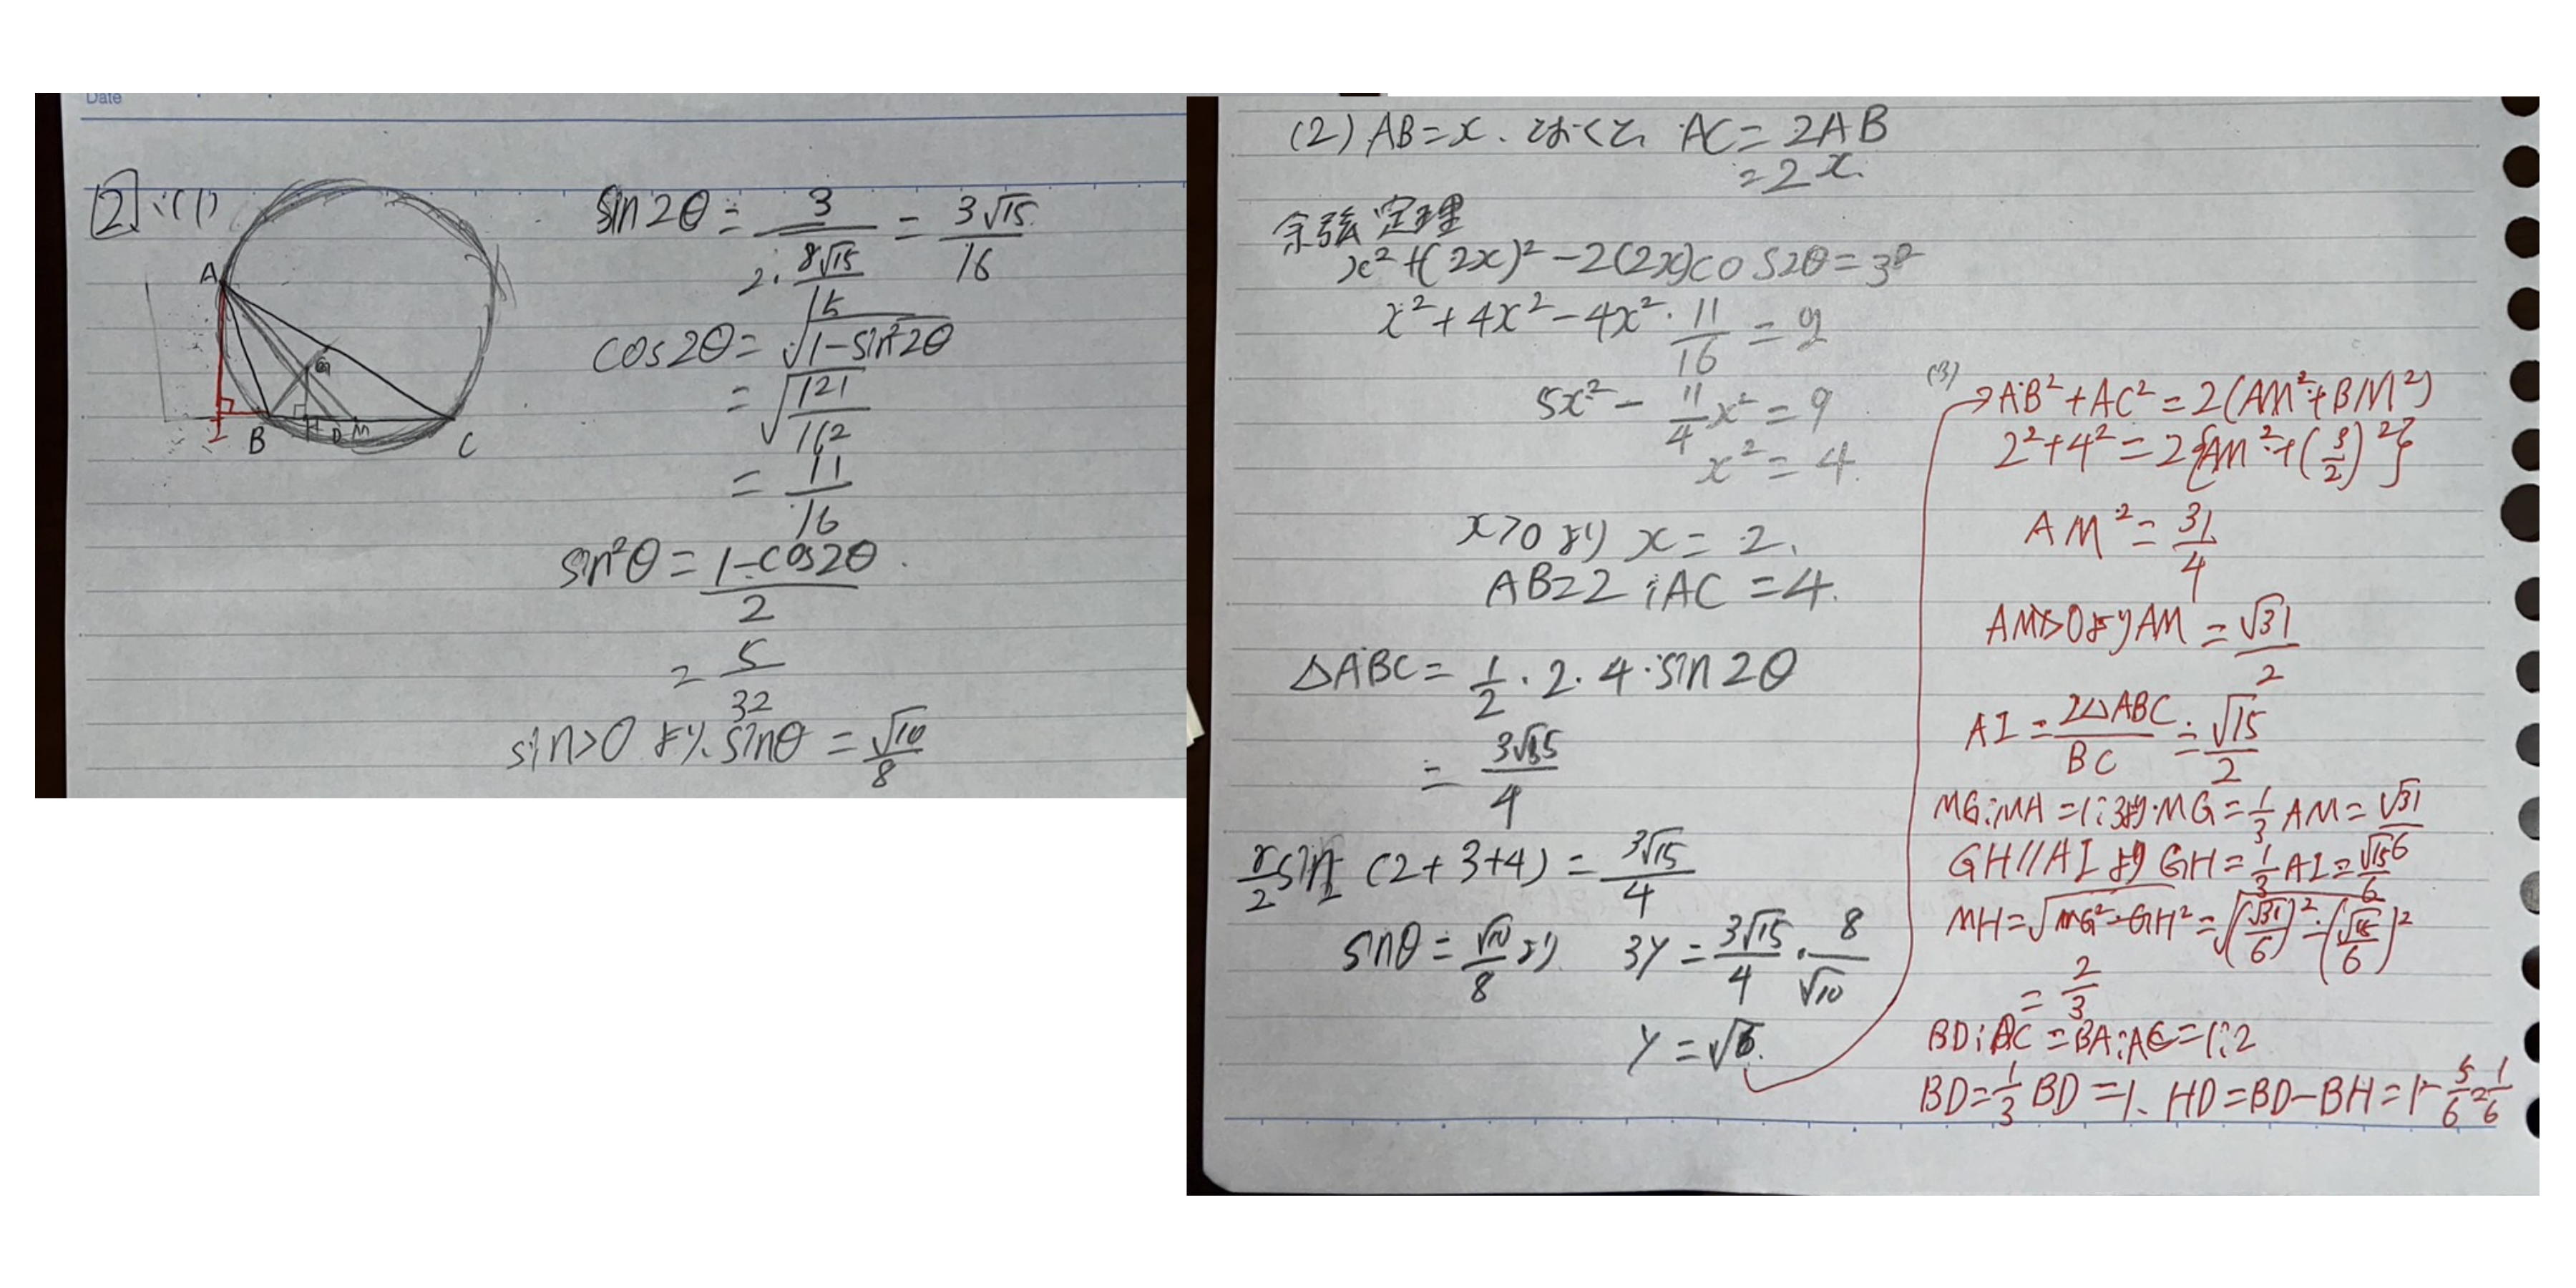 Date
[2] (1)
sin2θ = 3/(2·8√15/15) = 3√15/16
cos2θ = √(1-sin²2θ)
= √(121/16²)
= 11/16
sin²θ = (1-cos2θ)/2
= 5/32
sin>0 より. sinθ = √10/8
A
G
I B H D M C
(2) AB=x. とおくと, AC=2AB
=2x.
余弦定理
x²+(2x)²-2(2x)cos2θ=3²
x²+4x²-4x²·11/16 = 9
5x²-11/4x² = 9
x² = 4.
x>0より x = 2.
AB=2, AC=4.
△ABC = 1/2·2·4·sin2θ
= 3√15/4
(2+3+4) = 3√15/4
sinθ = √10/8 より 3Y = 3√15/4·8/√10
Y = √6.
(3)
→AB²+AC²=2(AM²+BM²)
2²+4²=2{AM²+(3/2)²}
AM²=31/4
AM>0よりAM = √31/2
AI = 2△ABC/BC = √15/2
MG:MA=1:3より·MG=1/3AM=√31/6
GH//AIより GH=1/3AI=√15/6
MH=√(MG²-GH²)=√((√31/6)²-(√15/6)²)
= 2/3
BD:DC=BA:AC=1:2
BD=1/3BD=1. HD=BD-BH=1-5/6=1/6